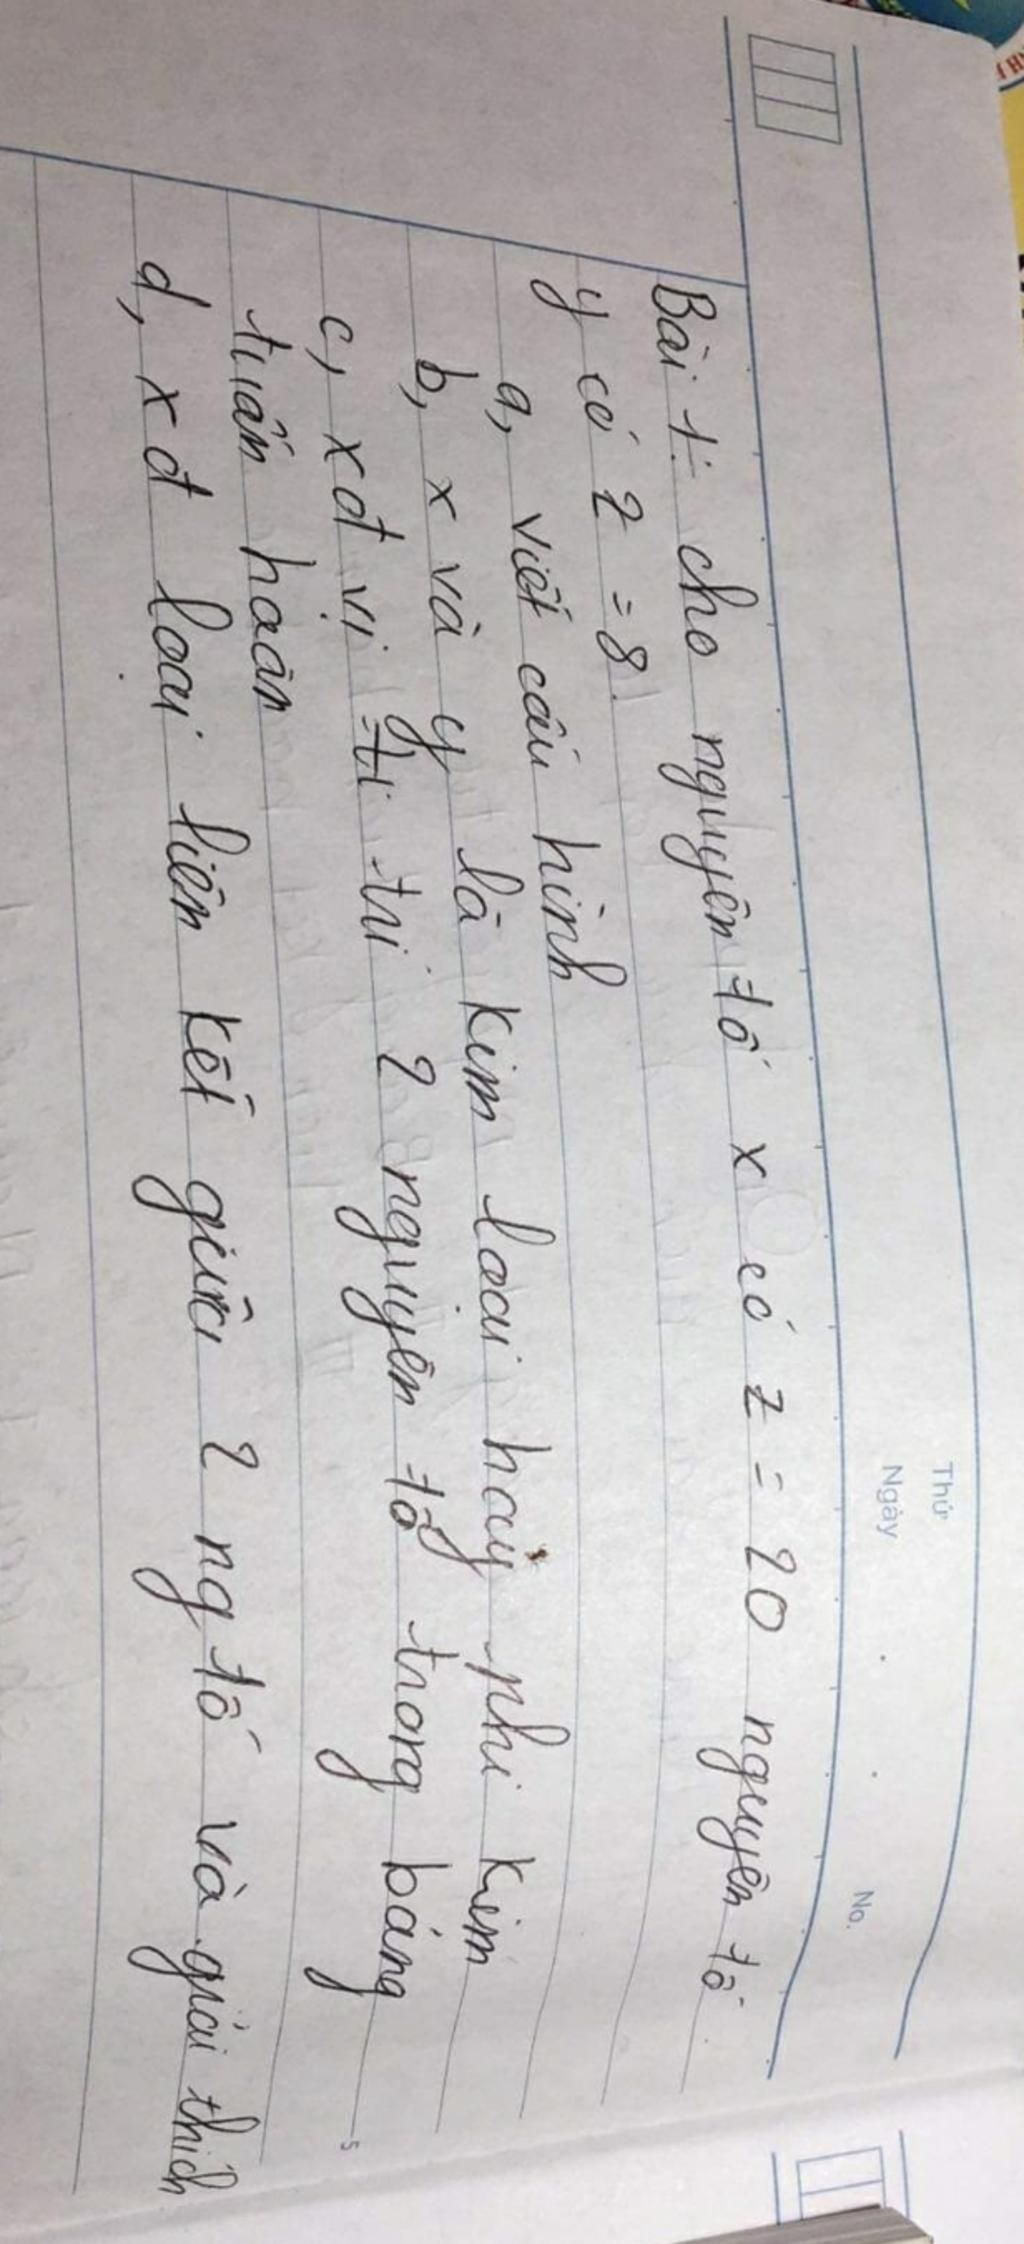 Thứ
Ngày
No.
Bài 1: cho nguyên tố x có z = 20 nguyên tố
y có z = 8.
a, viết cấu hình
b, x và y là kim loại hay phi kim
c, xđ vị trí 2 nguyên tố trong bảng
tuần hoàn
d, xđ loại liên kết giữa 2 ng tố và giải thích
5